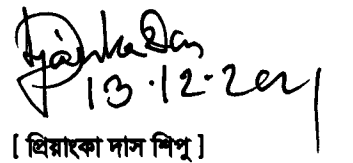 Priyanka Das
13.12.2021
[ প্রিয়াংকা দাস শিপু ]